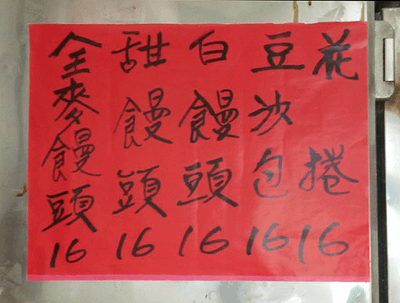 花捲16
豆沙包16
白饅頭16
甜饅頭16
全麥饅頭16